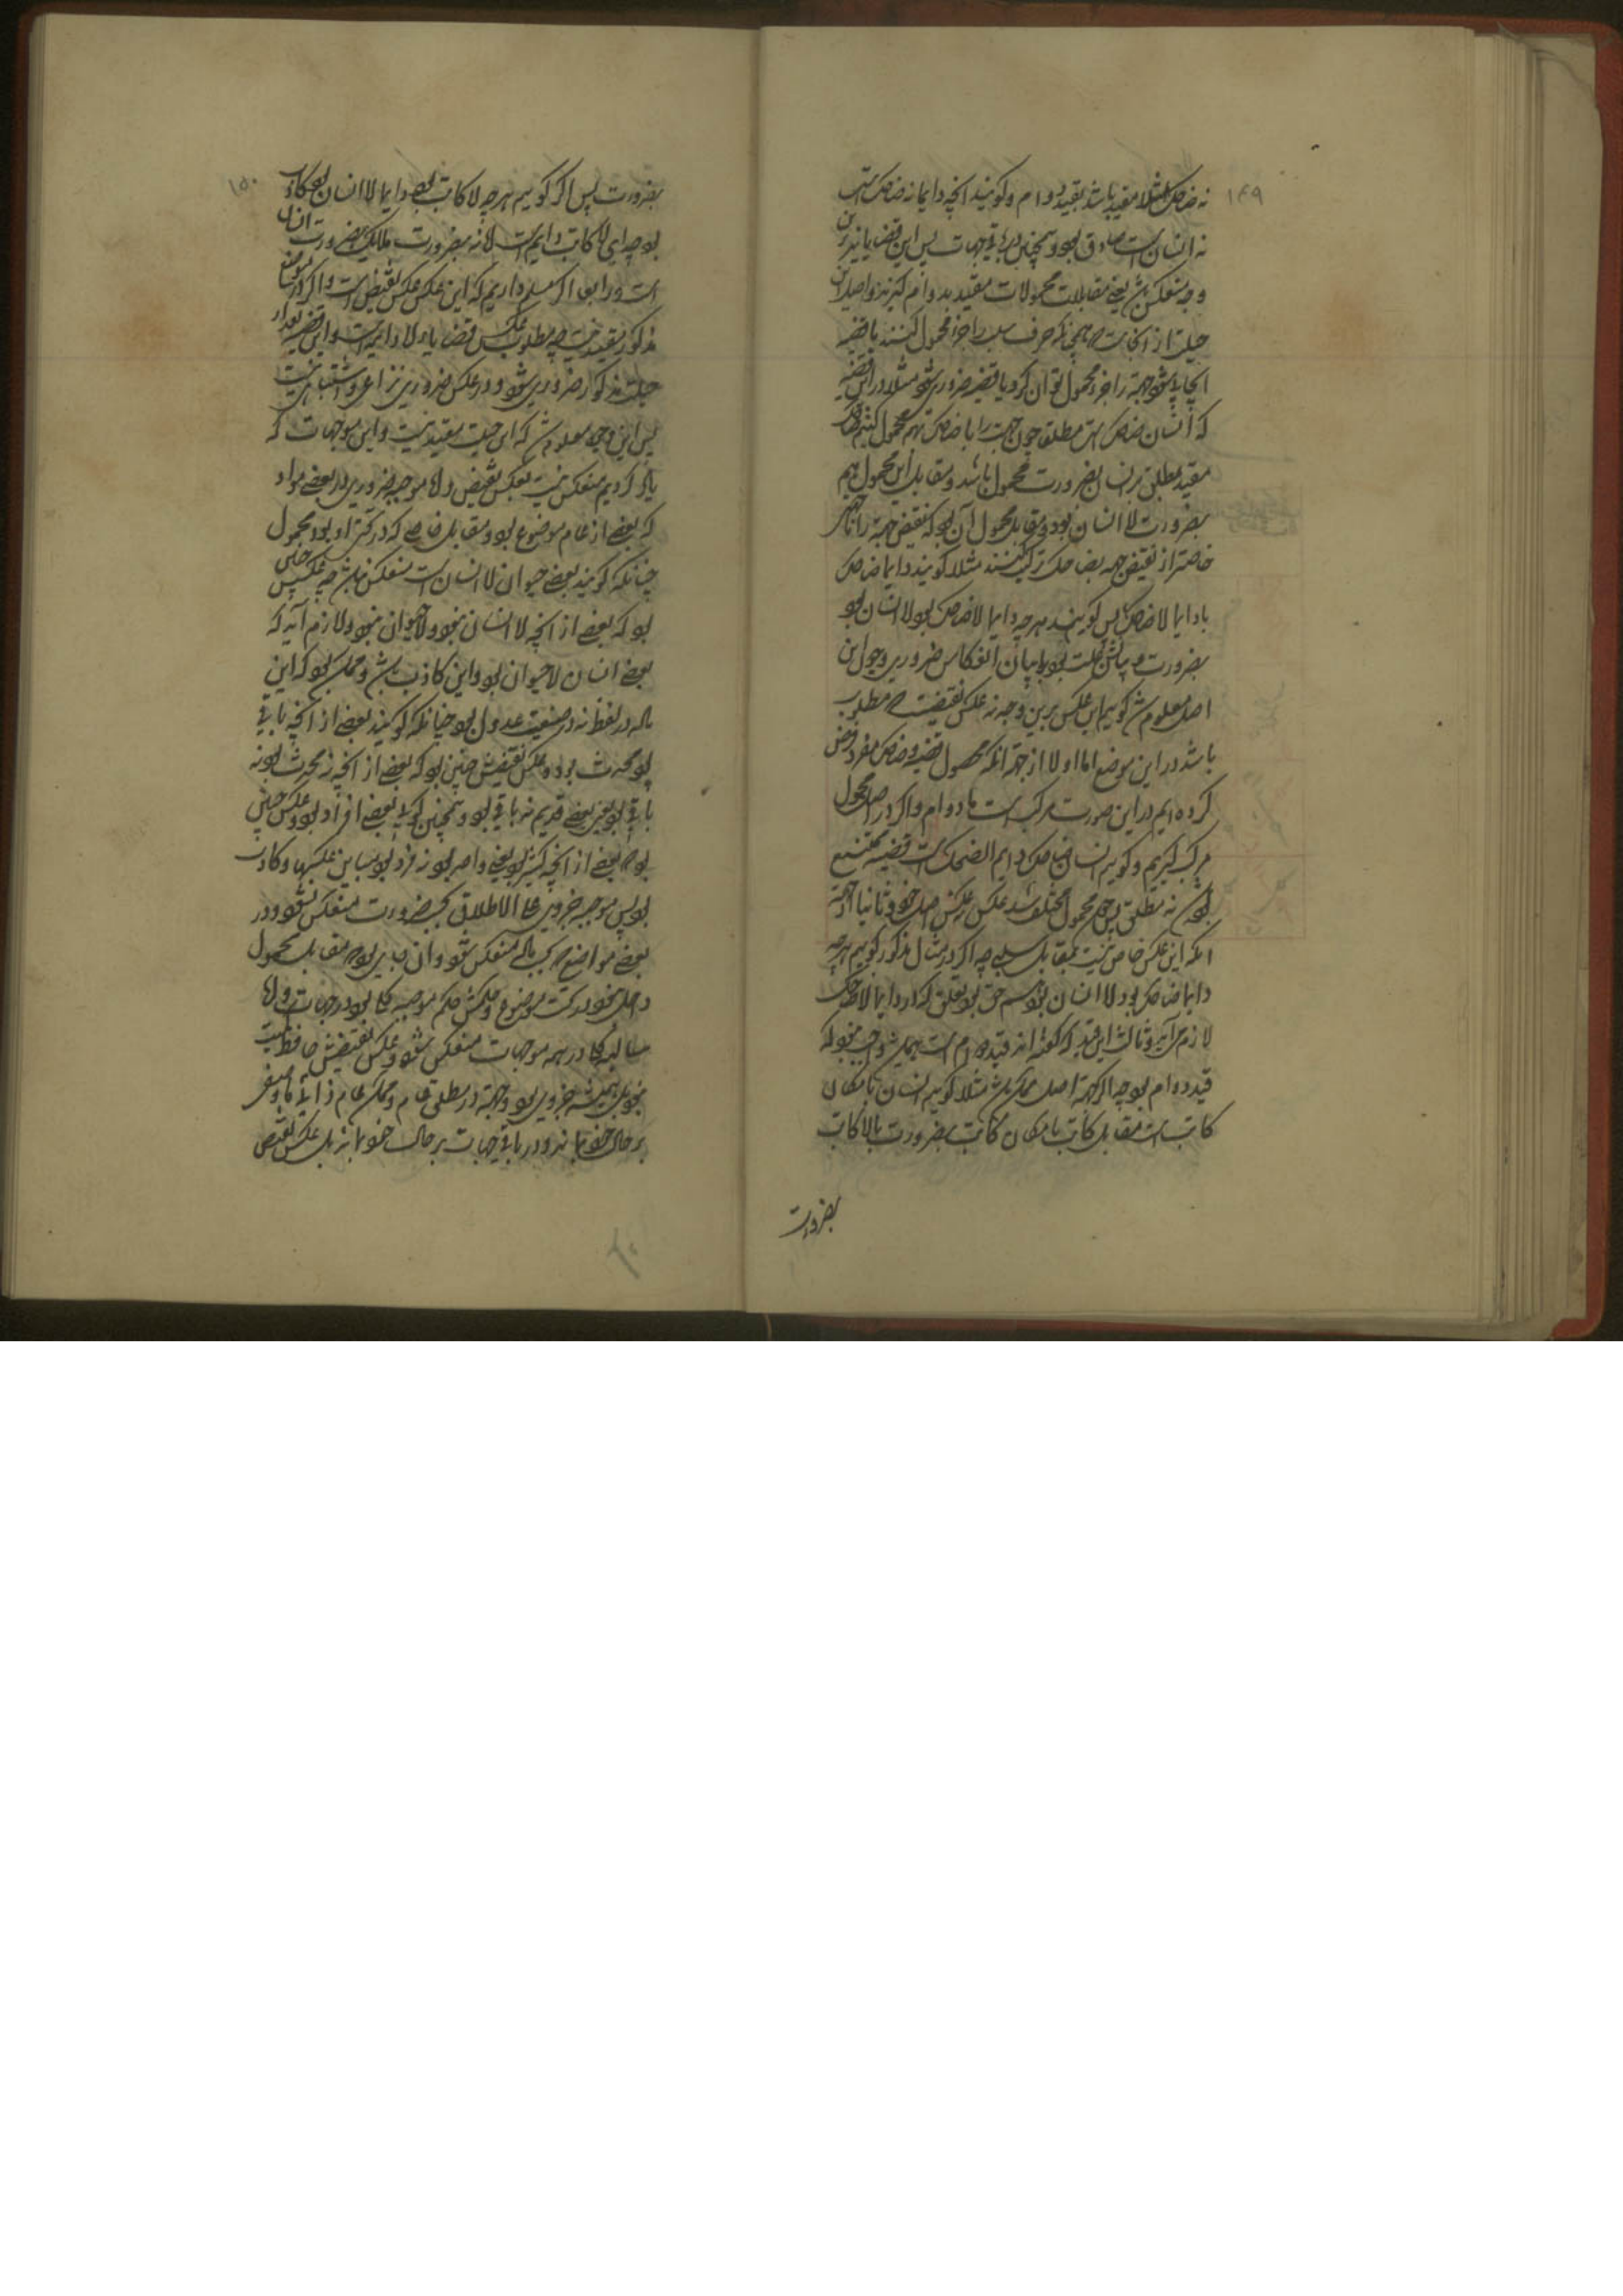 ۱۴۹
نه ضاحک مثلا مقید باشد بقید دوام و کویند انچه دایما نه ضاحکست
نه انسان است صادق بود و همچنین در باقی جهات پس این قضایا نیز برین
وجه منعکس باشد یعنی مقابلات محمولات مقید بدوام کیرند و اصل این
حیلت از انجاست که همچنانکه حرف سلب را جزء محمول کنند تا قضیه
ایجابی شود جهة را جزء محمول توان کرد تا قضیه ضروری شود مثلا در این قضیه
که انسان ضاحک است مطلقا چون جهت را با ضاحک بهم محمول کنیم ضاحک
مقید بمطلق مر انسان را بضرورت محمول باشد و مقابل این محمول هم
بضرورت لا انسان بود و مقابل محمول آن بود که نقیض جهة را یا چیزی
خاصتر از نقیض جهة بضاحک ترکیب کنند مثلا کویند دایما ضاحک
یا دایما لا ضاحک پس کویند هر چه دایما لا ضاحک بود لا انسان بود
بضرورت و بیانش بخلف بود یا ببیان انعکاس ضروری و چون این
اصل معلوم شد کوییم این عکس برین وجه نه عکس نقیضست که مطلوب
باشد در این موضع اما اولا از جهة انکه محمول قضیه ضاحک مفرد فرض
کرده ایم در این صورت مرکب است با دوام و اکر در اصل محمول
مرکب کیریم و کوییم انسان ضاحک دایم الضحک است قضیه ممتنع
بود نه مطلق پس چون محمول مختلف شد عکس نه عکس اصل خود و ثانیا از جهة
انکه این عکس خاص نیست بمقابل سلبی چه اکر در مثال مذکور کوییم هر چه
دایما ضاحک بود لا انسان بود هم حق بود و تعلق ندارد دایما لا ضاحک
لازم می آید و ثالثا این قید که کفته اند قید دوام است همیشه واجب نبود که
قید دوام بود چه اکر جهة اصل ممکن باشد مثلا کوییم انسان بامکان
کاتب است مقابل کاتب بامکان کاتب بضرورت یا لا کاتب
بضرورت
۱۵۰
بضرورت پس اکر کوییم هر چه لا کاتب بود دایما لا انسان بود کاذب
بود چه ای لا کاتب دایم است لا نه بضرورت بلکه بضرورت انسان
است و رابعا اکر مسلم داریم که این عکس عکس نقیض است و اکر در این موضع
مذکور مفید نیست چه مطلوب عکس قضایاء لا دایمه است و این قضیه بعد از
حیلت مذکور ضروری شود و در عکس ضروری نزاعی و اشتباهی نیست
پس این وجه معلوم شد که این حیلت مفید نیست و این موجبات که
یاد کردیم منعکس نیست بعکس نقیض و اما موجبه جزوی در بعضی مواد
که بعضی از عام موضوع بود و مقابل خاصی که در تحت او بود محمول
چنانکه کویند بعضی حیوان لا انسان است منعکس نباشد چه عکسش چنین
بود که بعضی از انچه لا انسان نبود لا حیوان نبود و لازم آید که
بعضی انسان لا حیوان بود و این کاذب باشد و ممکن بود که این
ماده در لفظ نه در صیغت عدول بود چنانکه کویند بعضی از انچه باقی
بود محدث بود و عکس نقیضش چنین بود که بعضی از انچه نه محدث بود نه
باقی بود یعنی بعضی قدیم نه باقی بود و همچنین کویند بعضی افراد بود و عکس چنین
بود که بعضی از انچه کثیر بود یعنی واحد بود نه فرد بود پس این عکسها کاذب
بود پس موجبه جزوی علی الاطلاق بحسب ضرورت منعکس نشود و در
بعضی مواضع بحسب ماده منعکس شود و ان جایی بود که مقابل محمول
داخل نبود در تحت موضوع و حکمش حکم موجبه کلی بود در جهات و اما
سالبه کلی در همه موجهات منعکس نشود و عکس نقیضش حافظ کمیت
نبود بل همیشه جزوی بود و جهة در مطلق عام و ممکن عام ذاتی یا وصفی
بر حال خود بماند و در باقی جهات بر حال خود نماند بل عکس نقیض